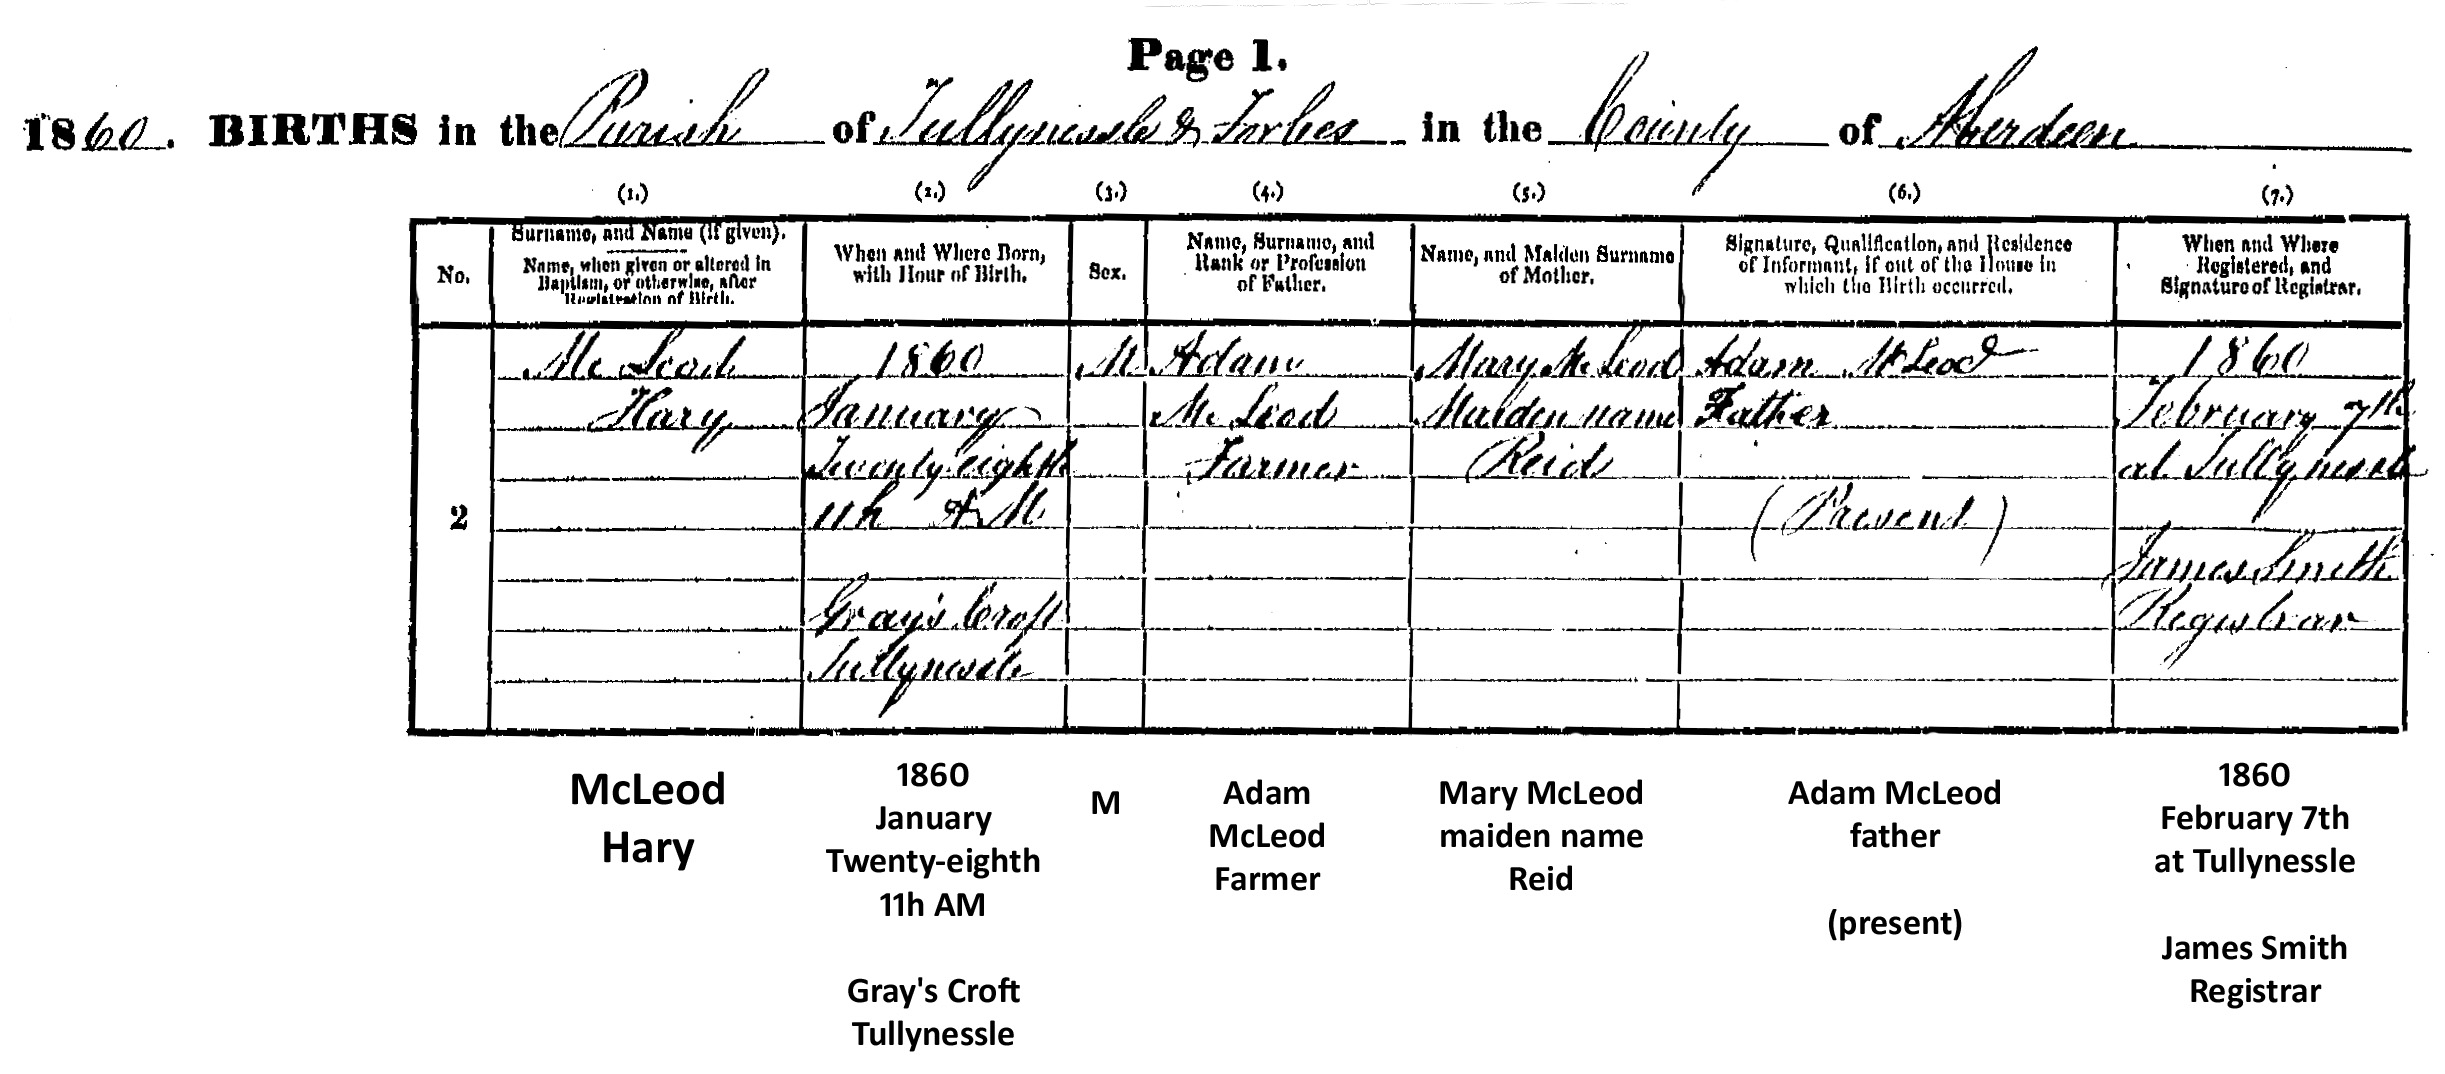 Page 1.
1860. BIRTHS in the Parish of Tullynessle & Forbes in the County of Aberdeen
(1.) (2.) (3.) (4.) (5.) (6.) (7.)
No.
Surname, and Name (if given).
Name, when given or altered in
Baptism, or otherwise, after
Registration of Birth.
When and Where Born,
with Hour of Birth.
Sex.
Name, Surname, and
Rank or Profession
of Father.
Name, and Maiden Surname
of Mother.
Signature, Qualification, and Residence
of Informant, if out of the House in
which the Birth occurred.
When and Where
Registered, and
Signature of Registrar.
2
McLeod
Hary
1860
January
Twenty eighth
11h A.M.
Gray's Croft
Tullynessle
M
Adam
McLeod
Farmer
Mary McLeod
Maiden name
Reid
Adam McLeod
Father
(Present)
1860
February 7th
at Tullynessle
James Smith
Registrar
McLeod
Hary
1860
January
Twenty-eighth
11h AM
Gray's Croft
Tullynessle
M
Adam
McLeod
Farmer
Mary McLeod
maiden name
Reid
Adam McLeod
father
(present)
1860
February 7th
at Tullynessle
James Smith
Registrar